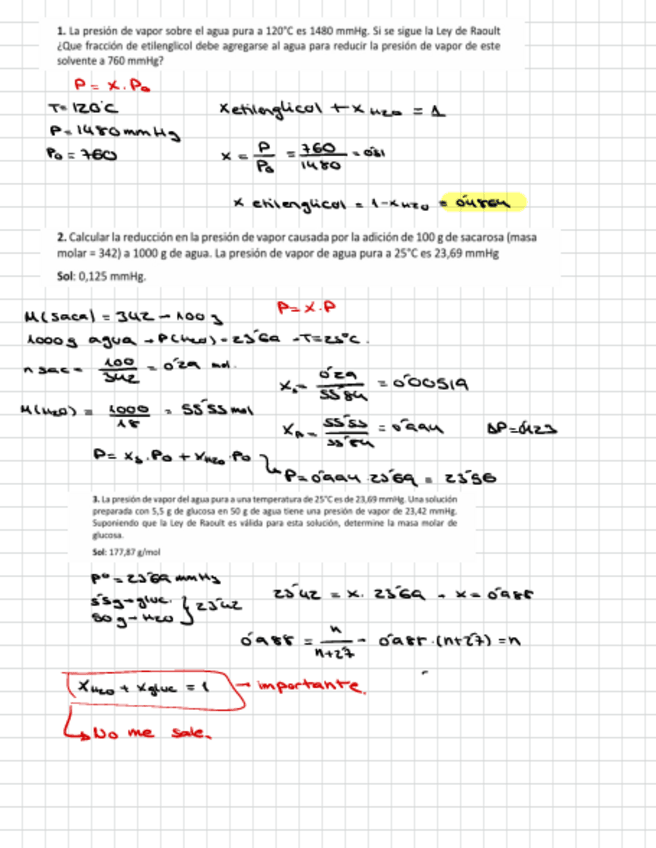 1. La presión de vapor sobre el agua pura a 120°C es 1480 mmHg. Si se sigue la Ley de Raoult
¿Que fracción de etilenglicol debe agregarse al agua para reducir la presión de vapor de este
solvente a 760 mmHg?
P = X . P₀
T = 120°C
P = 1480 mmHg
P₀ = 760
X etilenglicol + X H₂O = 1
X = P/P₀ = 760/1480 = 0'51
X etilenglicol = 1 - X H₂O = 0'4864
2. Calcular la reducción en la presión de vapor causada por la adición de 100 g de sacarosa (masa
molar = 342) a 1000 g de agua. La presión de vapor de agua pura a 25°C es 23,69 mmHg
Sol: 0,125 mmHg.
P = X . P
M (saca) = 342 - 100 g
1000 g agua → P(H₂O) = 23'69 - T = 25°C.
n sac = 100/342 = 0'29 mol.
X = 0'29/55'84 = 0'00519
M (H₂O) = 1000/18 = 55'55 mol
X = 55'55/55'84 = 0'994
ΔP = 0'123
P = Xs . P₀ + X H₂O . P₀
P = 0'994 . 23'69 = 23'56
3. La presión de vapor del agua pura a una temperatura de 25°C es de 23,69 mmHg. Una solución
preparada con 5,5 g de glucosa en 50 g de agua tiene una presión de vapor de 23,42 mmHg.
Suponiendo que la Ley de Raoult es válida para esta solución, determine la masa molar de
glucosa.
Sol: 177,87 g/mol
P⁰ = 23'69 mmHg
5'5 g → gluc.
50 g → H₂O
} 23'42
23'42 = X . 23'69 → X = 0'988
0'988 = n/(n+2'7) - 0'988 . (n+2'7) = n
X H₂O + X gluc = 1 → importante.
↳ No me sale.